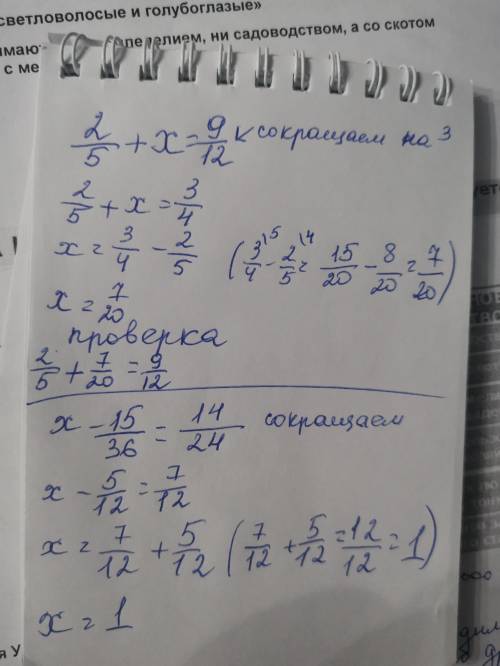 светловолосые и голубоглазые»
делием, ни садоводством, а со скотом
с ме
2/5 + x = 9/12 < сокращаем на 3
2/5 + x = 3/4
x = 3/4 - 2/5 (3/4\5 - 2/5\4 = 15/20 - 8/20 = 7/20)
x = 7/20
проверка
2/5 + 7/20 = 9/12
x - 15/36 = 14/24 сокращаем
x - 5/12 = 7/12
x = 7/12 + 5/12 (7/12 + 5/12 = 12/12 = 1)
x = 1